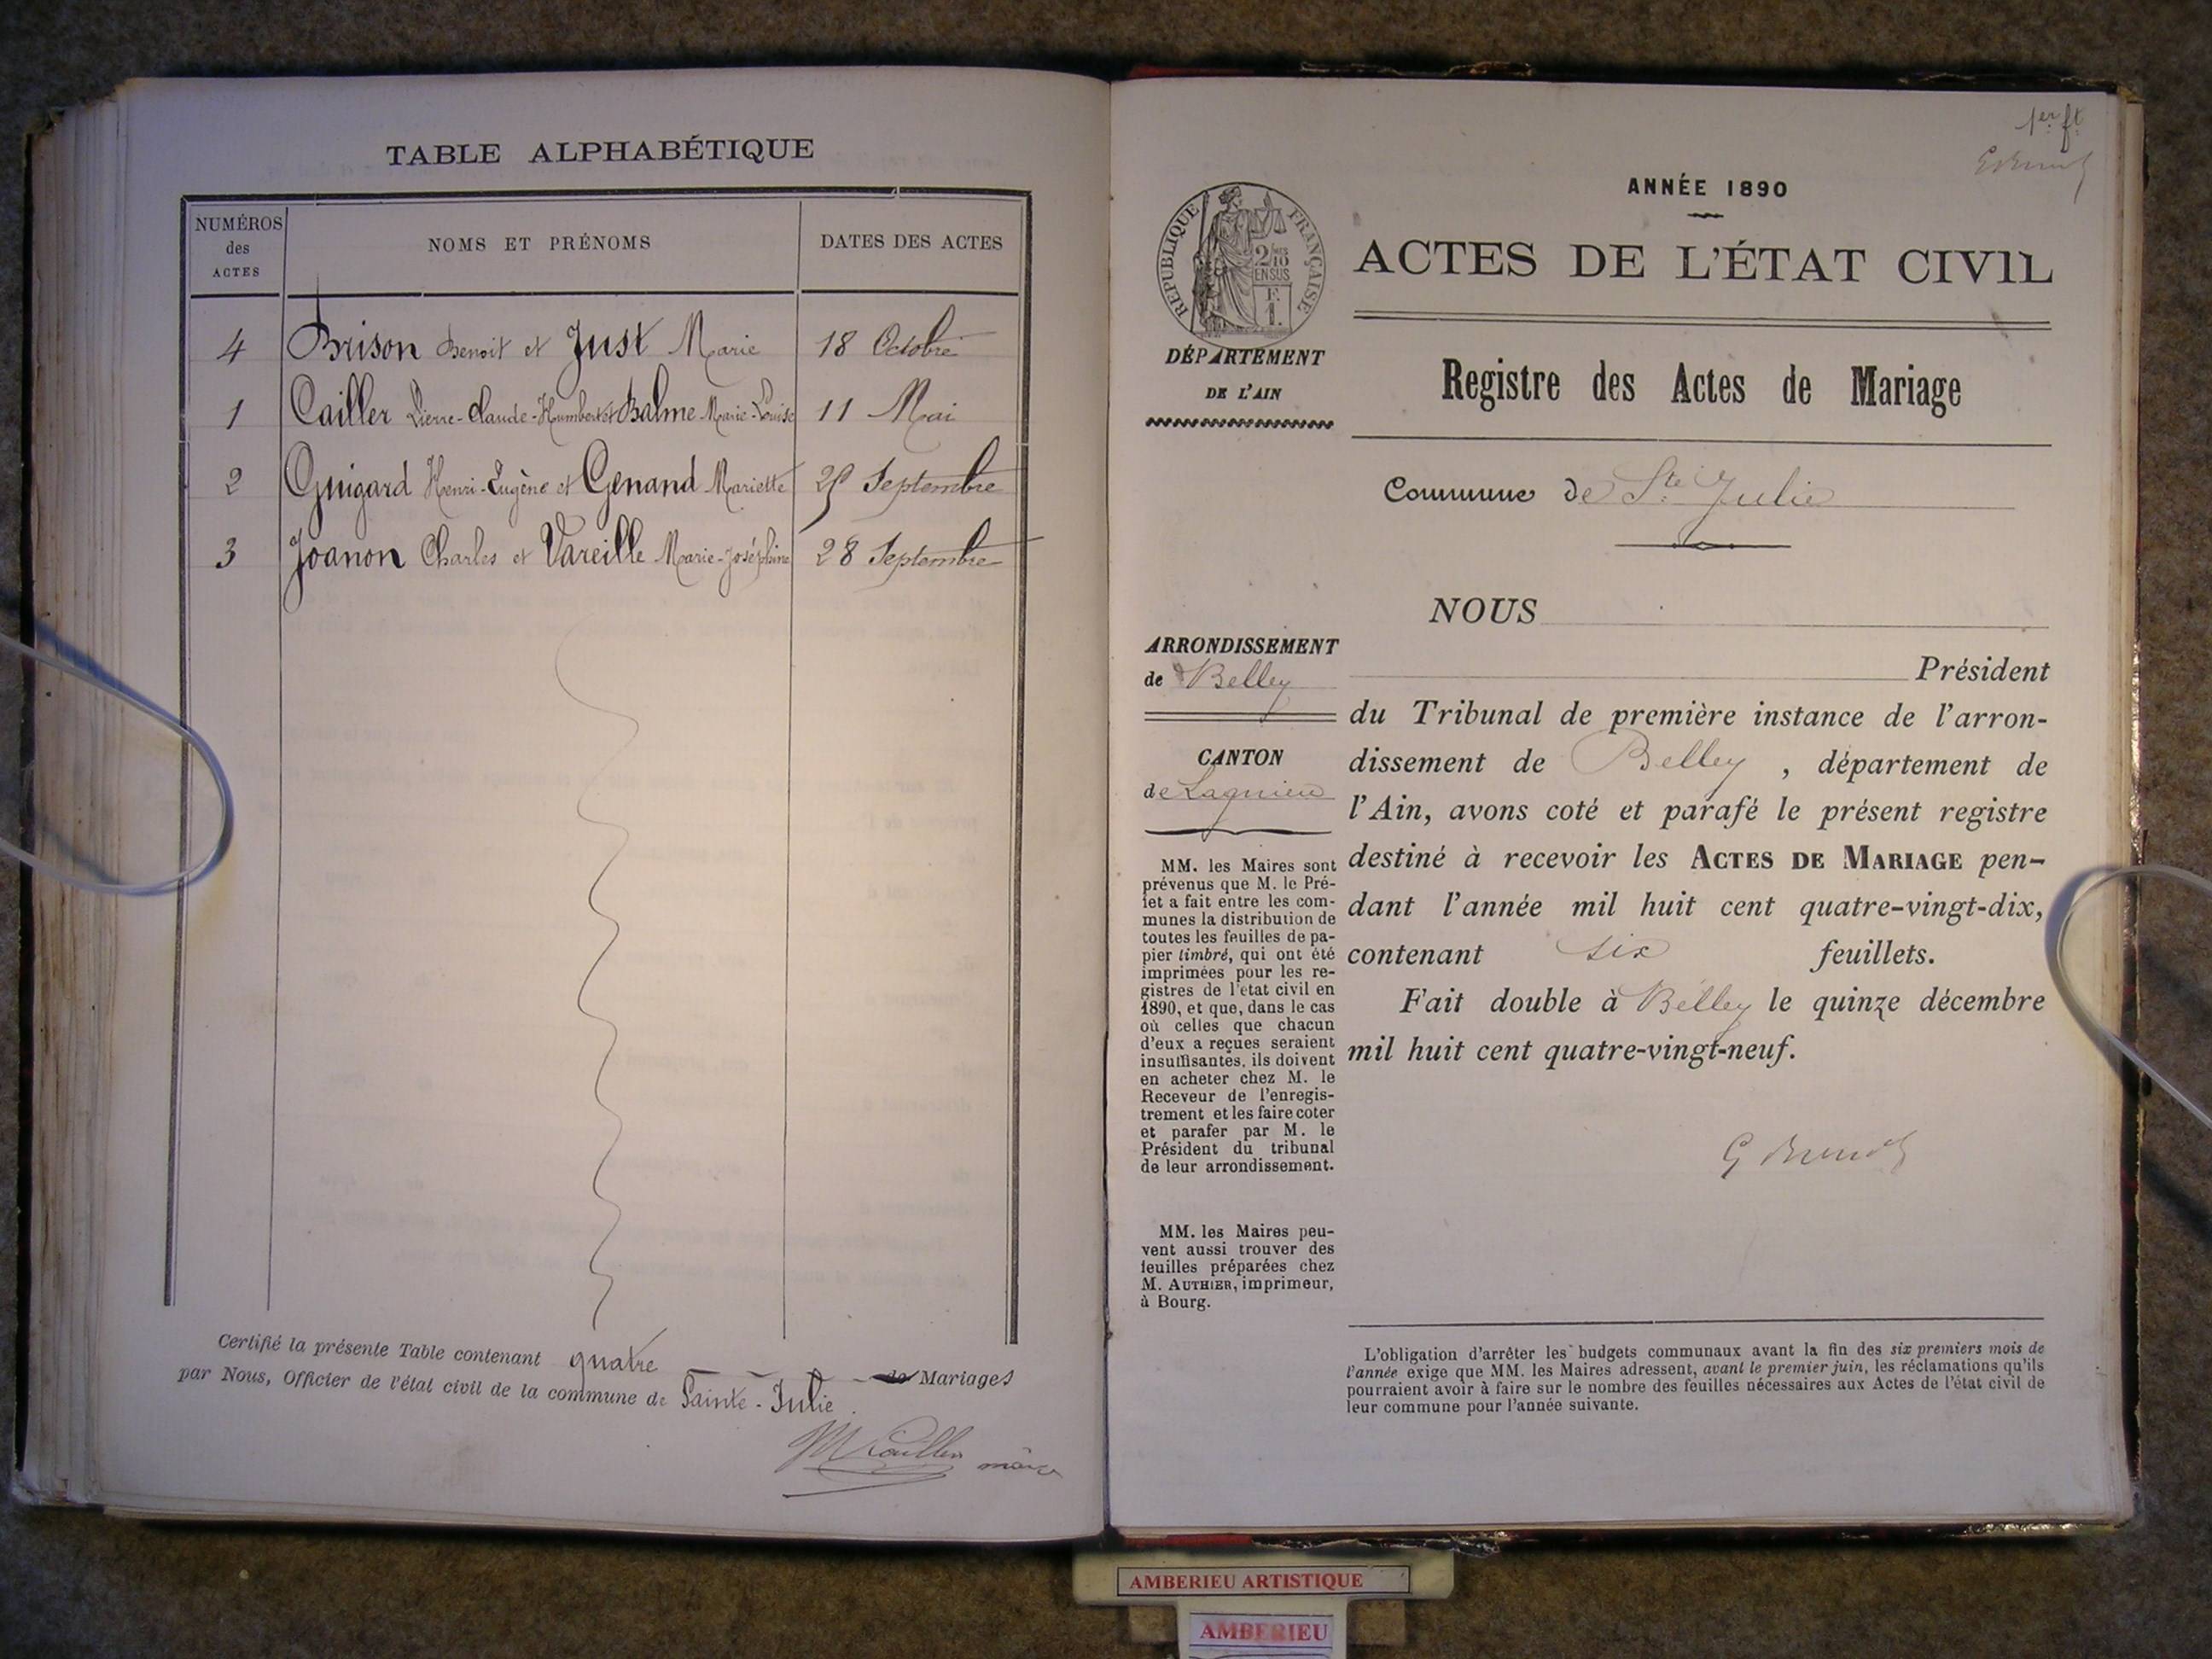 TABLE ALPHABÉTIQUE
NUMÉROS des ACTES
NOMS ET PRÉNOMS
DATES DES ACTES
4 Brison Benoit et Just Marie 18 Octobre
1 Cailler Pierre-Claude-Humbert et Balme Marie-Louise 11 Mai
2 Guigard Henri-Eugène et Genand Mariette Septembre
3 Joanon Charles et Vareille Marie-Joséphine 28 Septembre
Certifié la présente Table contenant quatre de Mariages
par Nous, Officier de l'état civil de la commune de Sainte-Julie.
maire
1er ft
ANNÉE 1890
RÉPUBLIQUE FRANÇAISE
2/10 EN SUS
F. 1.
ACTES DE L'ÉTAT CIVIL
DÉPARTEMENT
DE L'AIN
Registre des Actes de Mariage
Commune de Ste Julie
ARRONDISSEMENT
de Belley
CANTON
de Lagnieu
MM. les Maires sont
prévenus que M. le Pré-
fet a fait entre les com-
munes la distribution de
toutes les feuilles de pa-
pier timbré, qui ont été
imprimées pour les re-
gistres de l'etat civil en
1890, et que, dans le cas
où celles que chacun
d'eux a reçues seraient
insuffisantes, ils doivent
en acheter chez M. le
Receveur de l'enregis-
trement et les faire coter
et parafer par M. le
Président du tribunal
de leur arrondissement.
MM. les Maires peu-
vent aussi trouver des
feuilles préparées chez
M. AUTHIER, imprimeur,
à Bourg.
NOUS
Président
du Tribunal de première instance de l'arron-
dissement de Belley, département de
l'Ain, avons coté et parafé le présent registre
destiné à recevoir les ACTES DE MARIAGE pen-
dant l'année mil huit cent quatre-vingt-dix,
contenant six feuillets.
Fait double à Belley le quinze décembre
mil huit cent quatre-vingt-neuf.
L'obligation d'arrêter les budgets communaux avant la fin des six premiers mois de
l'année exige que MM. les Maires adressent, avant le premier juin, les réclamations qu'ils
pourraient avoir à faire sur le nombre des feuilles nécessaires aux Actes de l'état civil de
leur commune pour l'année suivante.
AMBERIEU ARTISTIQUE
AMBERIEU